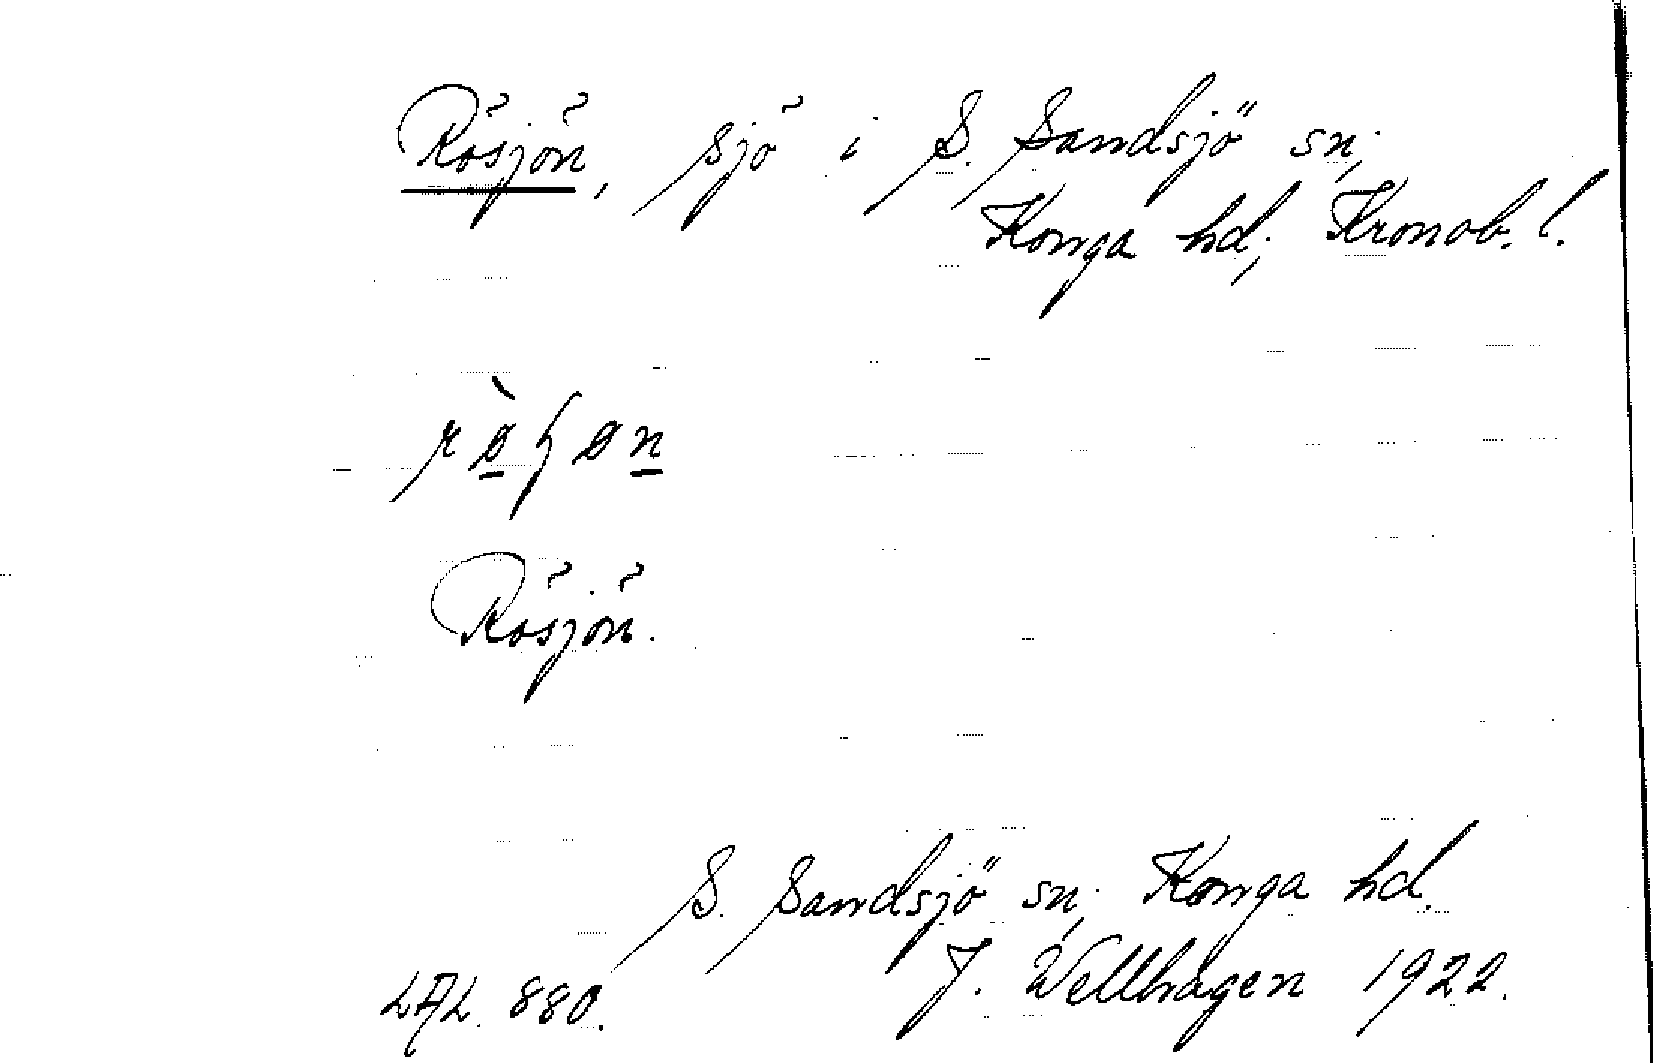 Rösjön, sjö i S. Sandsjö sn,
Konga hd, Kronob. l.
Rösjön.
S. Sandsjö sn, Konga hd.
J. Wellhagen 1922.
LAL. 880.